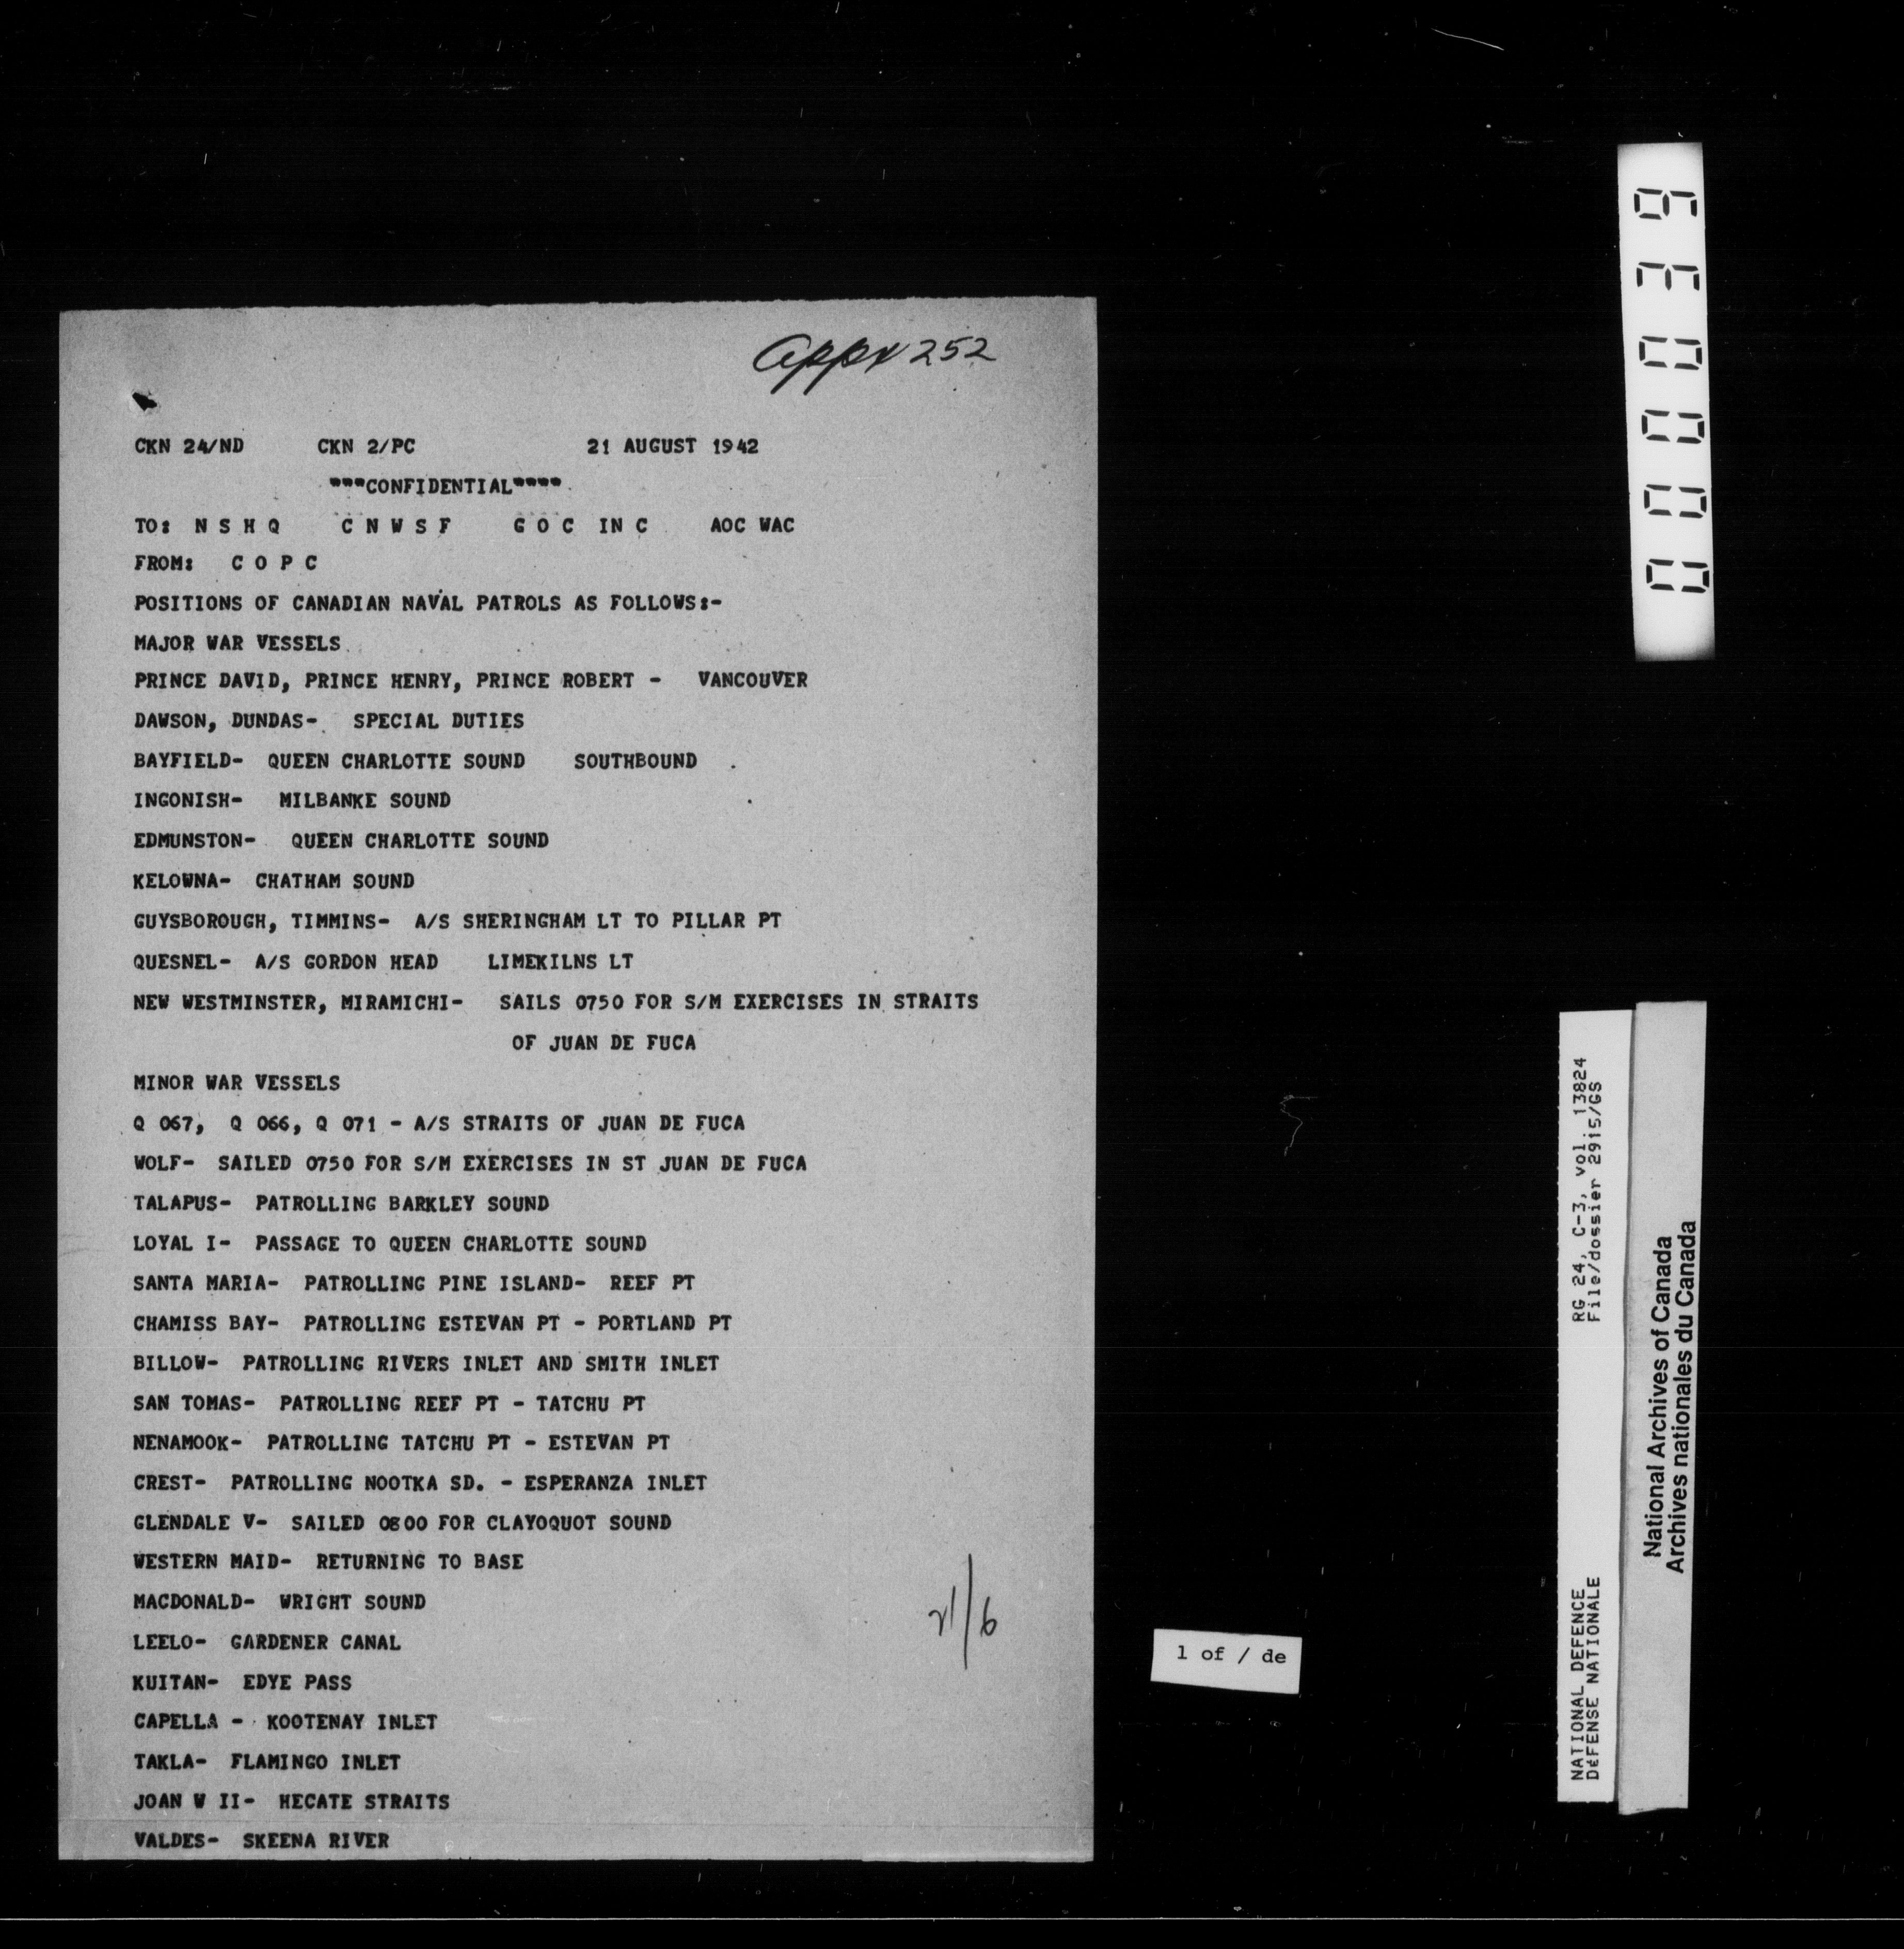 Appx 252
CKN 24/ND CKN 2/PC 21 AUGUST 1942
***CONFIDENTIAL****
TO: N S H Q C N W S F G O C IN C AOC WAC
FROM: C O P C
POSITIONS OF CANADIAN NAVAL PATROLS AS FOLLOWS:-
MAJOR WAR VESSELS
PRINCE DAVID, PRINCE HENRY, PRINCE ROBERT - VANCOUVER
DAWSON, DUNDAS- SPECIAL DUTIES
BAYFIELD- QUEEN CHARLOTTE SOUND SOUTHBOUND
INGONISH- MILBANKE SOUND
EDMUNSTON- QUEEN CHARLOTTE SOUND
KELOWNA- CHATHAM SOUND
GUYSBOROUGH, TIMMINS- A/S SHERINGHAM LT TO PILLAR PT
QUESNEL- A/S GORDON HEAD LIMEKILNS LT
NEW WESTMINSTER, MIRAMICHI- SAILS 0750 FOR S/M EXERCISES IN STRAITS
OF JUAN DE FUCA
MINOR WAR VESSELS
Q 067, Q 066, Q 071 - A/S STRAITS OF JUAN DE FUCA
WOLF- SAILED 0750 FOR S/M EXERCISES IN ST JUAN DE FUCA
TALAPUS- PATROLLING BARKLEY SOUND
LOYAL I- PASSAGE TO QUEEN CHARLOTTE SOUND
SANTA MARIA- PATROLLING PINE ISLAND- REEF PT
CHAMISS BAY- PATROLLING ESTEVAN PT - PORTLAND PT
BILLOW- PATROLLING RIVERS INLET AND SMITH INLET
SAN TOMAS- PATROLLING REEF PT - TATCHU PT
NENAMOOK- PATROLLING TATCHU PT - ESTEVAN PT
CREST- PATROLLING NOOTKA SD. - ESPERANZA INLET
GLENDALE V- SAILED 0800 FOR CLAYOQUOT SOUND
WESTERN MAID- RETURNING TO BASE
MACDONALD- WRIGHT SOUND
LEELO- GARDENER CANAL
KUITAN- EDYE PASS
CAPELLA - KOOTENAY INLET
TAKLA- FLAMINGO INLET
JOAN W II- HECATE STRAITS
VALDES- SKEENA RIVER
21/6
1 of / de
000039
NATIONAL DEFENCE RG 24, C-3, vol. 13824
DéFENSE NATIONALE File/dossier 2915/GS
National Archives of Canada
Archives nationales du Canada